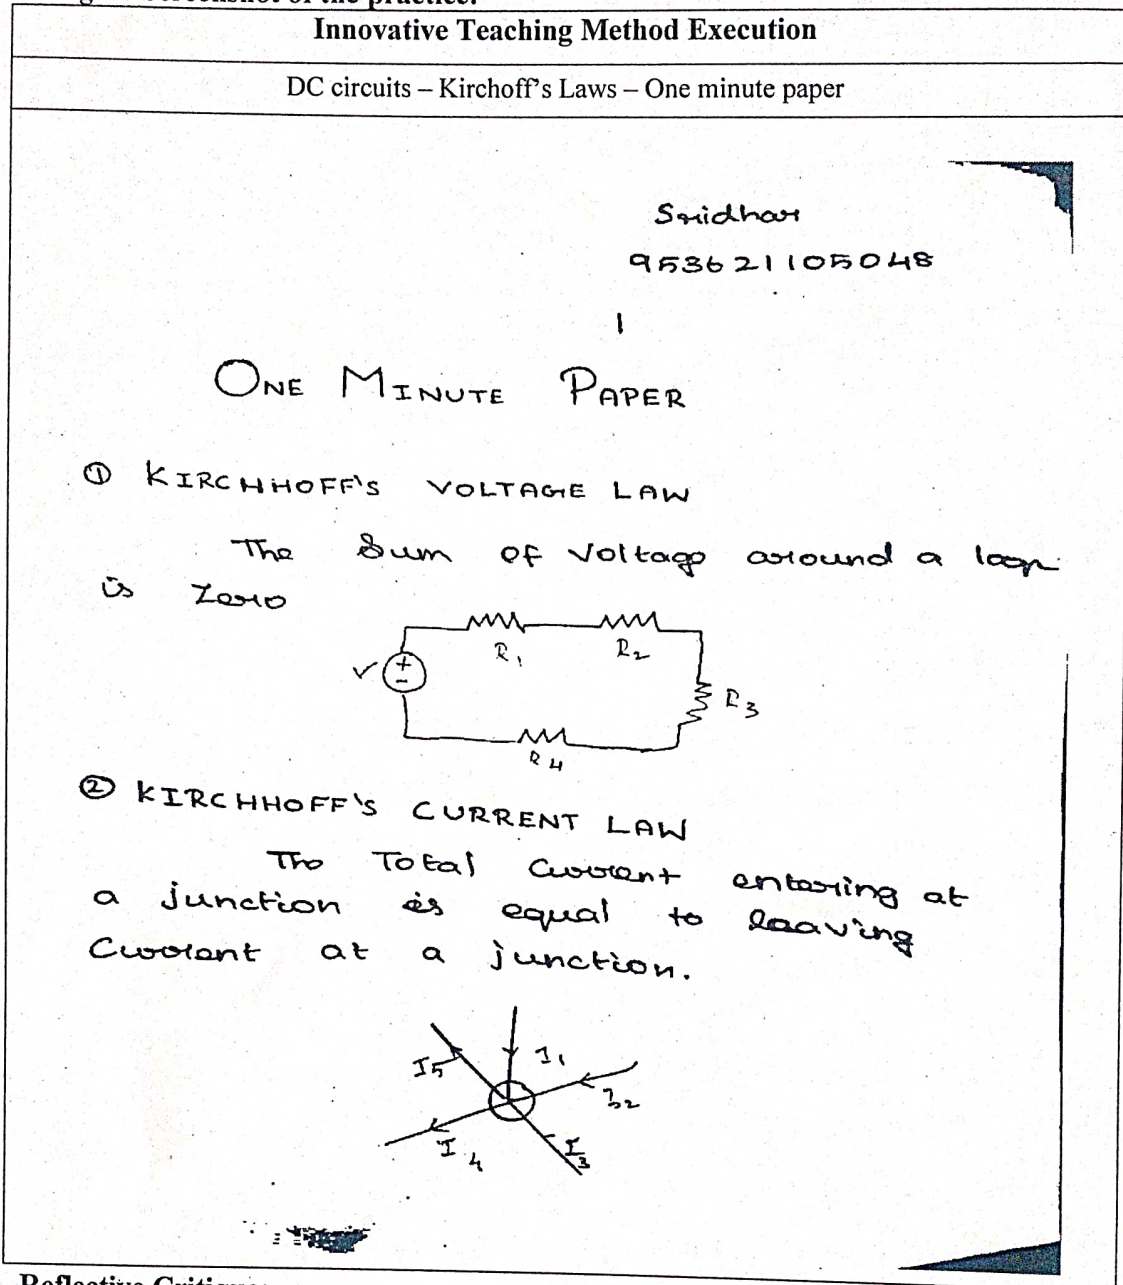 Screenshot of the practice.
Innovative Teaching Method Execution
DC circuits – Kirchoff's Laws – One minute paper
Sridhar
953621105048
1
ONE MINUTE PAPER
① KIRCHHOFF'S VOLTAGE LAW
The Sum of Voltage around a loop
is Zero
V + -
R1
R2
R3
R4
② KIRCHHOFF'S CURRENT LAW
The Total Current entering at
a junction is equal to leaving
Current at a junction.
I1
I2
I3
I4
I5
Reflective Critique